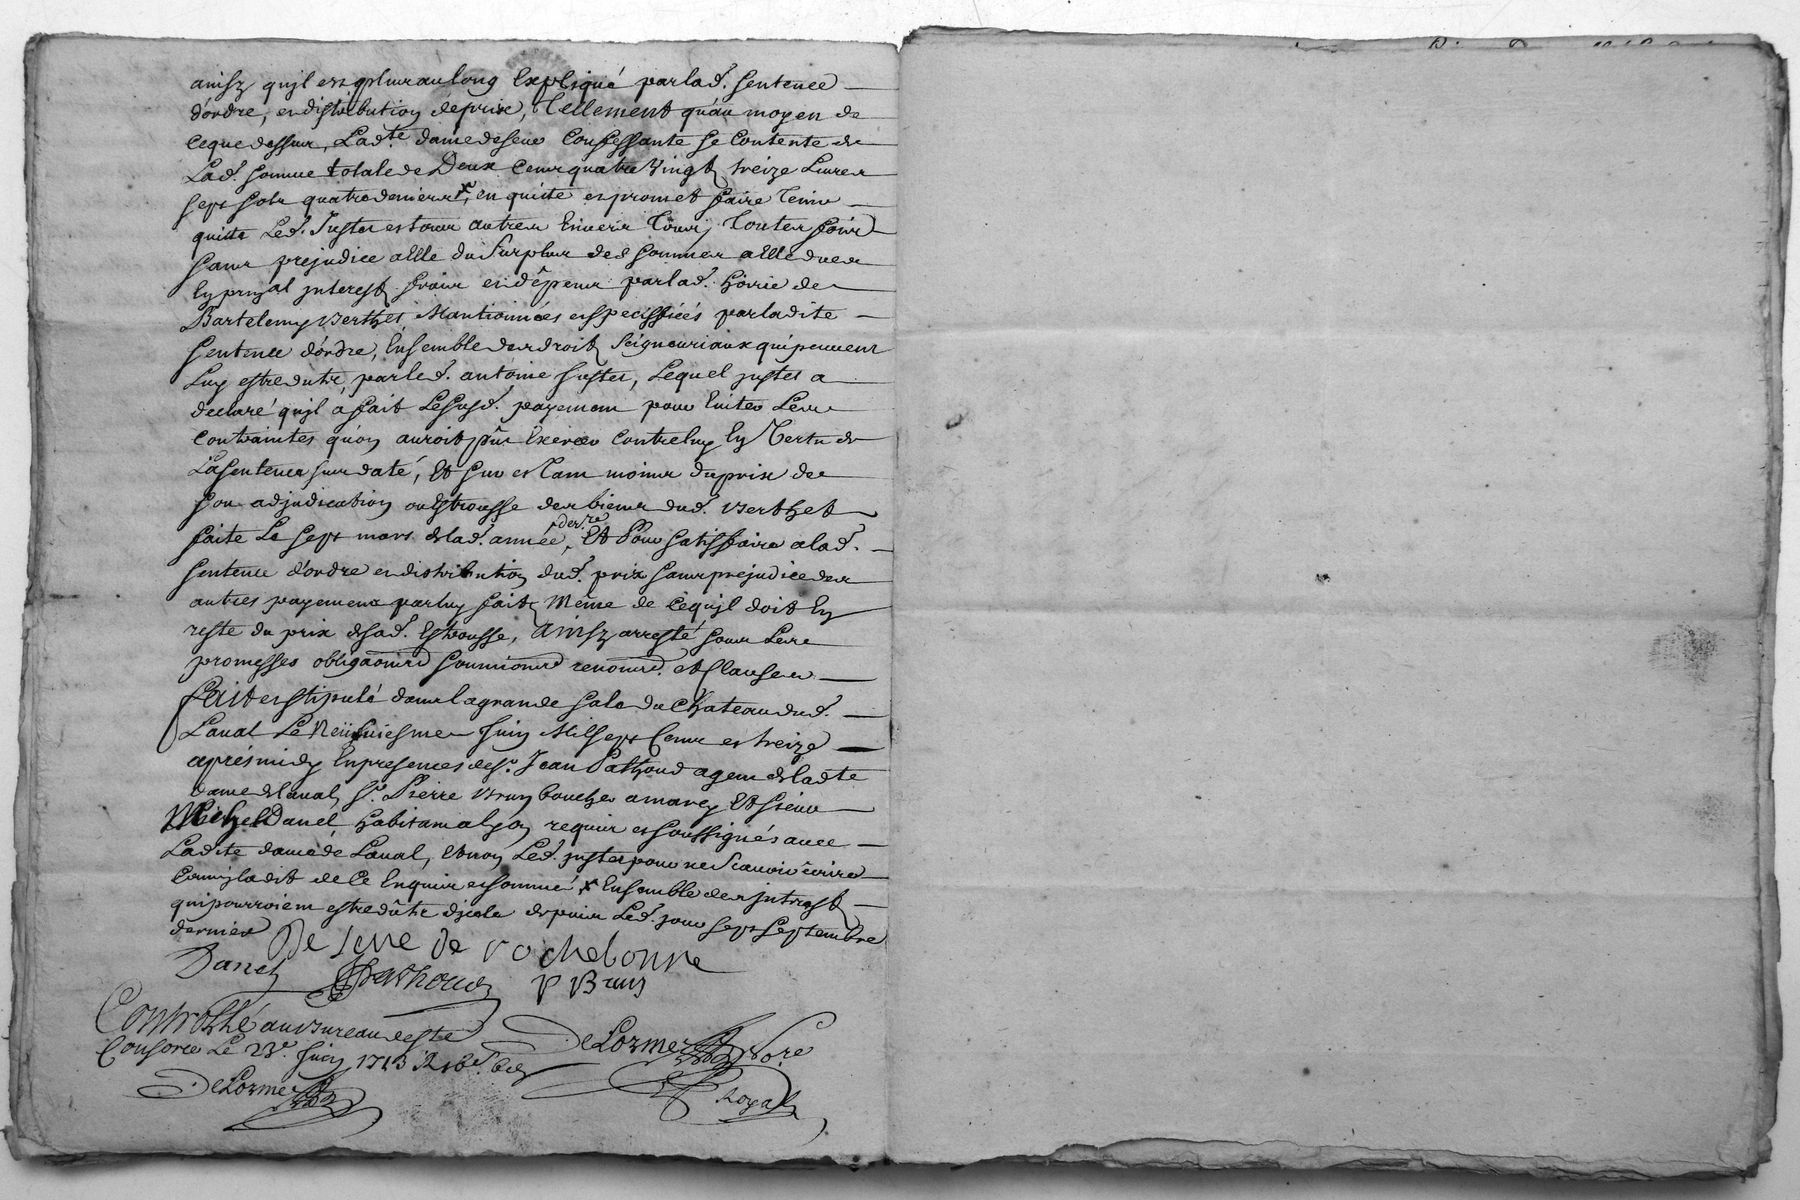 ainsy qu'il est plus au long Expliqué par lad. sentence
d'ordre, et distribution de prix, Tellement qu'au moyen de
ce que dessus, Lad.te dame de serre Confessante se Contente de
Lad. somme totale de Deux Cent quatre Vingt treize Livres
sept sols quatre deniers x, en quitte et promet faire Tenir
quitte Led. Juster et tous autres Envers Tous, Toutes fois
sans prejudice a Elle du Surplus des sommes a Elle dues
En prinpal interest frais et dépens par lad. Hoirie de
Bartelemy Berthet, Mantionnées et specifiées par ladite
sentence d'ordre, Ensemble des droits seigneuriaux qui peuvent
Luy estre duts, par led. antoine Juster, Lequel juster a
declaré qu'il a fait Le susd. payement pour Eviter Les
Contraintes qu'on auroit pûs Exercer Contre luy En Vertu de
La sentence sus datée, Et sur et Tant moins du prix de
son adjudication ou Estrousse des biens dud. Berthet
faite Le sept mars de lad. année der.re Et Pour satisfaire a lad.
sentence d'ordre et distribution dud. prix sans prejudice des
autres payements par luy faits Même de Ce qu'il doit En
reste du prix de sad. Estrousse, Ainsy arresté sous Les
promesses obligaons soumions renons. et Clauses
Fait et stipulé dans la grande sale du Chateau dud.
Laval Le Neüfviesme Juin Mil sept Cent et treize
aprés midy En presences de s.r Jean Pathoud agent de ladte
dame de Laval, s.r Pierre Brun boucher a marcy Et sieur
Michel Danel habitant a lyon requis et soussignés avec
Ladite dame de Laval, et non Led. juster pour ne scavoir écrire
Comm'il a dit de Ce Enquis et sommé x Ensemble des intrest
qui pourroient estre dûts d'icele depuis Led. jour sept septembre
dernier
De serre de rochebonne
Danel Pathoud P Brun
Controllé au Bureau de ste
Consorce Le 23e. Juin 1713
DeLorme Nore
DeLorme Royal